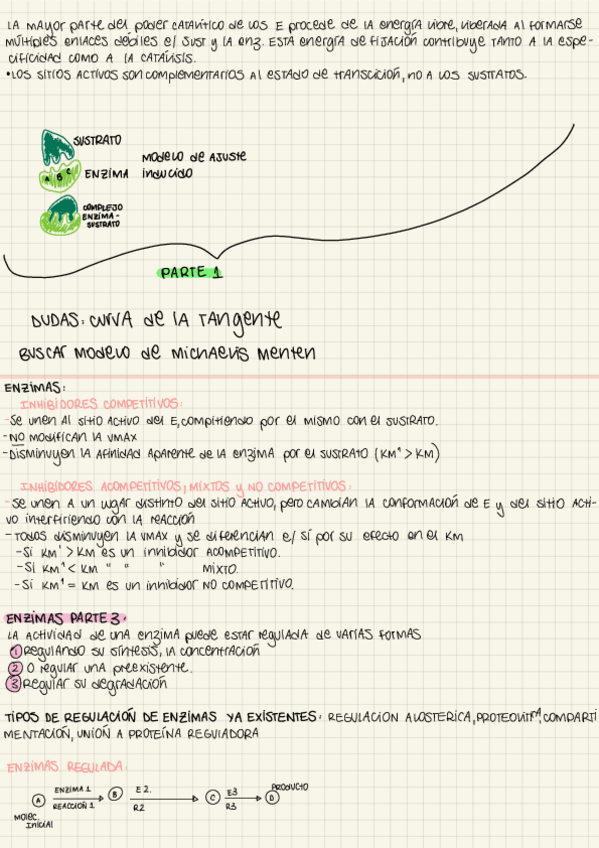 LA MAYOR PARTE DEL PODER CATALÍTICO DE LOS E PROCEDE DE LA ENERGÍA LIBRE, LIBERADA AL FORMARSE
MÚLTIPLES ENLACES DÉBILES E/ SUST Y LA ENZ. ESTA ENERGÍA DE FIJACIÓN CONTRIBUYE TANTO A LA ESPE-
CIFICIDAD COMO A LA CATÁLISIS.
•LOS SITIOS ACTIVOS SON COMPLEMENTARIOS AL ESTADO DE TRANSICIÓN, NO A LOS SUSTRATOS.
SUSTRATO
A B C ENZIMA
MODELO DE AJUSTE
INDUCIDO
COMPLEJO
ENZIMA-
SUSTRATO
PARTE 1
DUDAS: CURVA DE LA TANGENTE
BUSCAR MODELO DE MICHAELIS MENTEN
ENZIMAS:
INHIBIDORES COMPETITIVOS:
-SE UNEN AL SITIO ACTIVO DEL E, COMPITIENDO POR EL MISMO CON EL SUSTRATO.
-NO MODIFICAN LA VMAX
-DISMINUYEN LA AFINIDAD APARENTE DE LA ENZIMA POR EL SUSTRATO (KM' > KM)
INHIBIDORES ACOMPETITIVOS, MIXTOS Y NO COMPETITIVOS:
-SE UNEN A UN LUGAR DISTINTO DEL SITIO ACTIVO, PERO CAMBIAN LA CONFORMACIÓN DE E Y DEL SITIO ACTI-
VO INTERFIRIENDO CON LA REACCIÓN
-TODOS DISMINUYEN LA VMAX Y SE DIFERENCIAN E/ SÍ POR SU EFECTO EN EL KM
-SI KM' > KM ES UN INHIBIDOR ACOMPETITIVO.
-SI KM' < KM " " " MIXTO.
-SI KM' = KM ES UN INHIBIDOR NO COMPETITIVO.
ENZIMAS PARTE 3:
LA ACTIVIDAD DE UNA ENZIMA PUEDE ESTAR REGULADA DE VARIAS FORMAS
1 REGULANDO SU SÍNTESIS, LA CONCENTRACIÓN
2 O REGULAR UNA PREEXISTENTE.
3 REGULAR SU DEGRADACIÓN
TIPOS DE REGULACIÓN DE ENZIMAS YA EXISTENTES: REGULACION ALOSTERICA, PROTEOLITCA, COMPARTI
MENTACIÓN, UNIÓN A PROTEÍNA REGULADORA
ENZIMAS REGULADA:
A ENZIMA 1 B E2. C E3 D PRODUCTO
REACCIÓN 1 R2 R3
MOLEC.
INICIAL